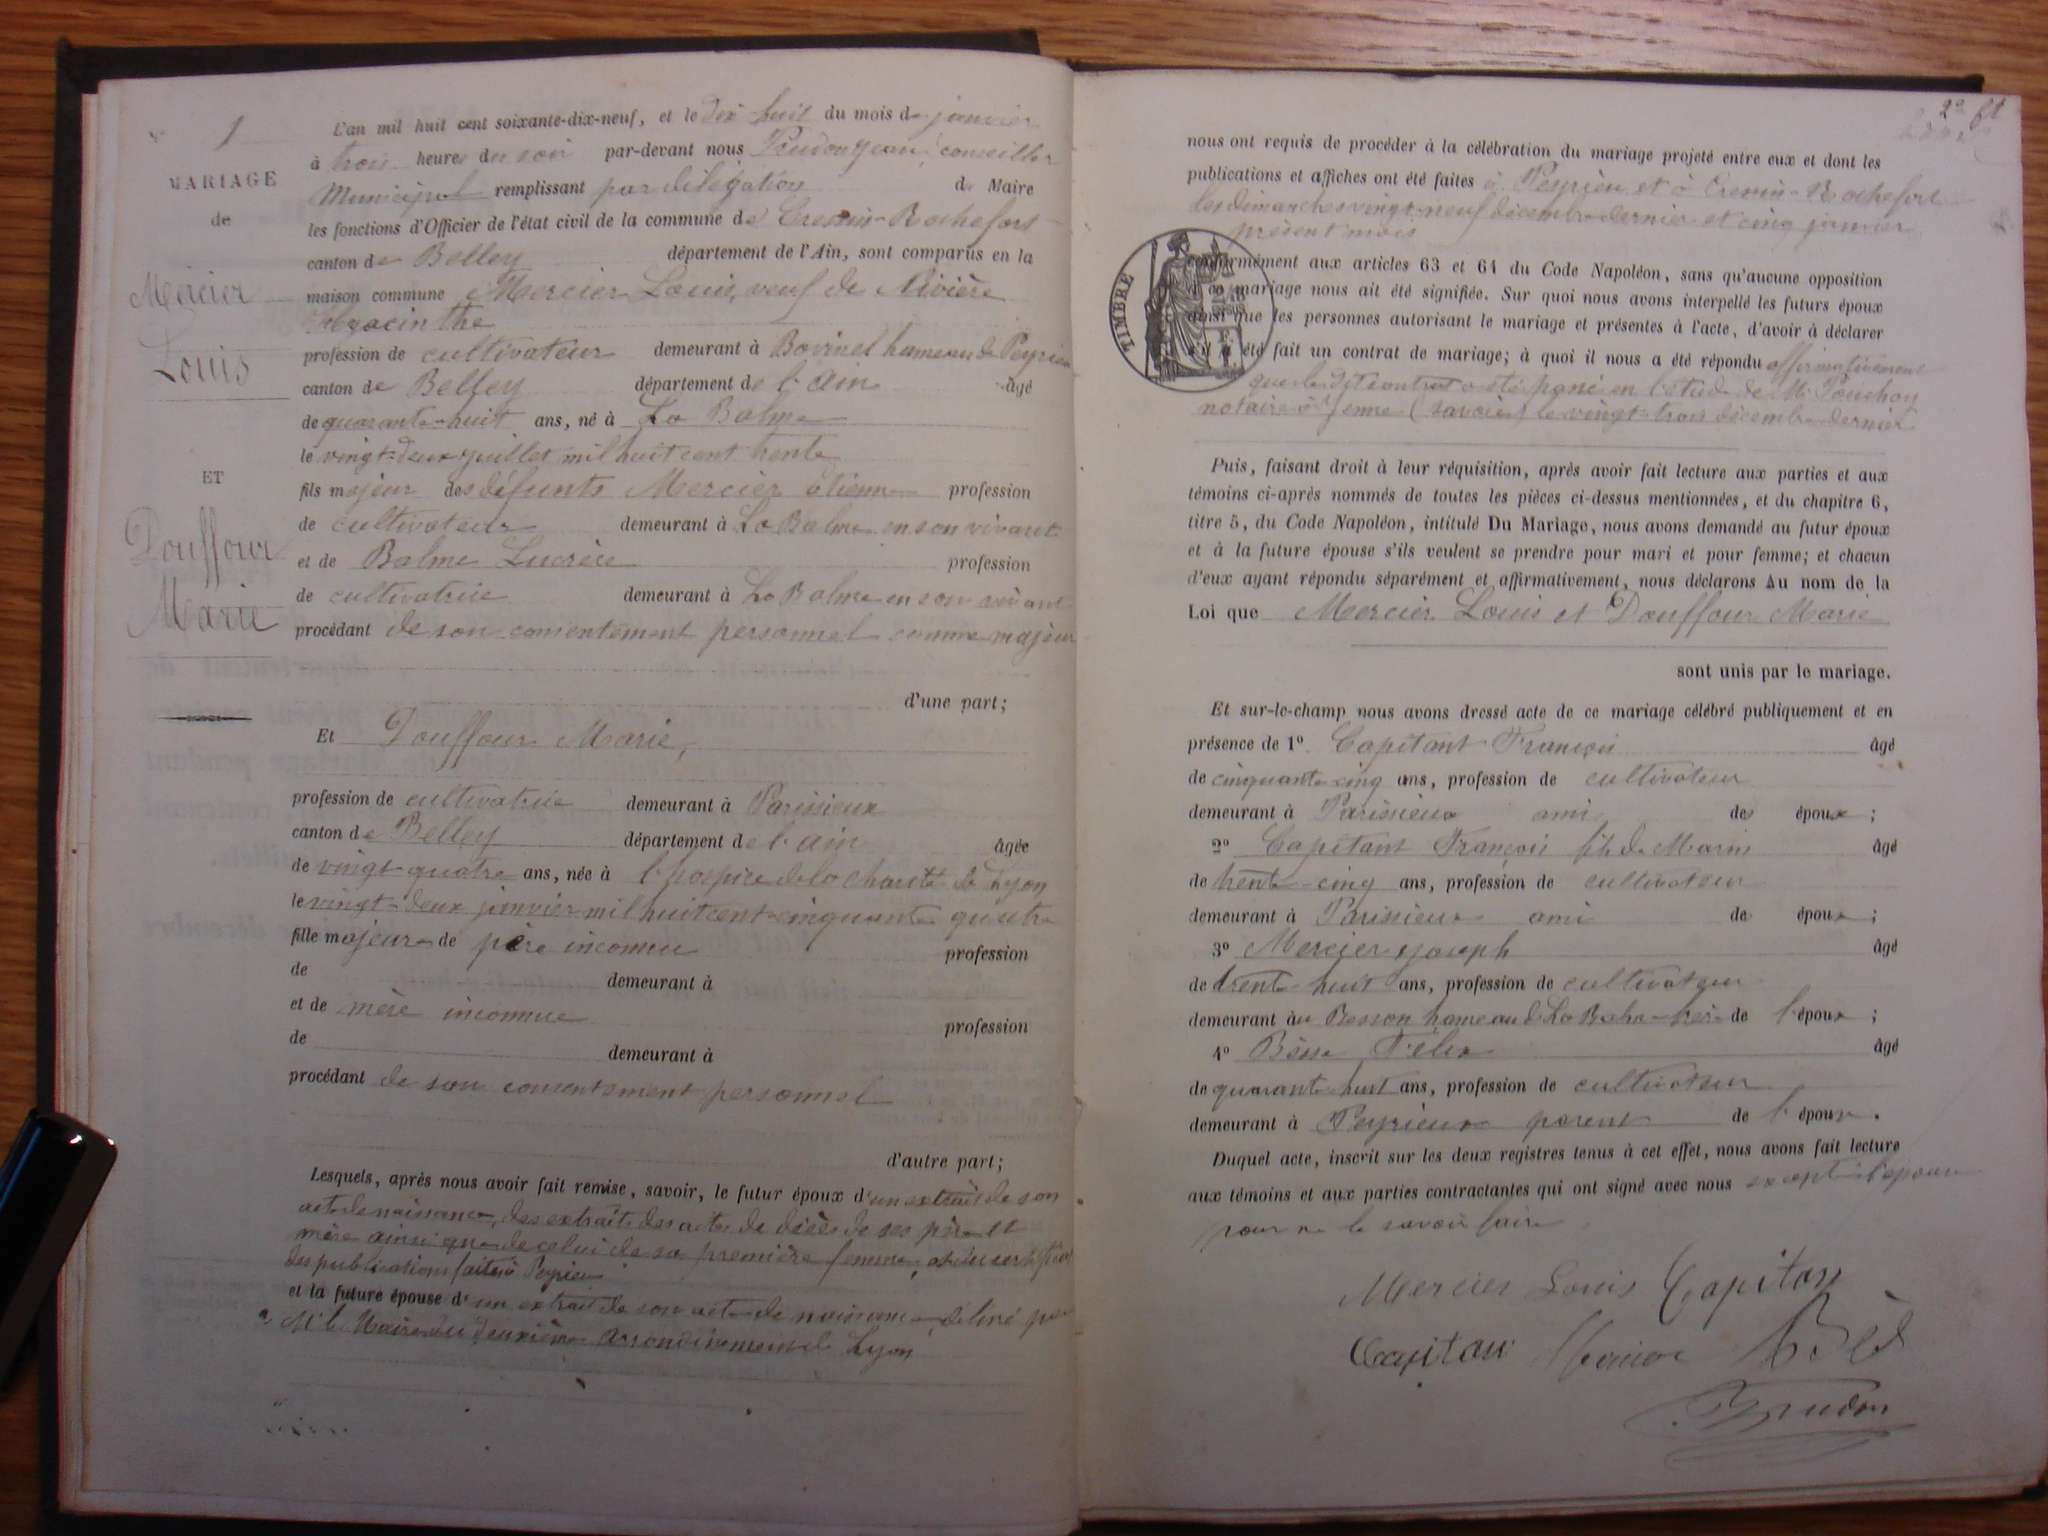 1
MARIAGE
de
Mercier
Louis
ET
Douffour
Marie
L'an mil huit cent soixante-dix-neuf, et le dix huit du mois de janvier
à trois heures du soir par-devant nous conseiller
Municipal remplissant par délégation de Maire
les fonctions d'Officier de l'état civil de la commune de Cressin-Rochefort
canton de Belley département de l'Ain, sont comparus en la
maison commune Mercier Louis, veuf de Rivière
hyacinthe
profession de cultivateur demeurant à Bovinel hameau de Peyrieu
canton de Belley département de l'Ain âgé
de quarante-huit ans, né à La Balme
le vingt-deux juillet mil huit cent trente
fils majeur des défunts Mercier étienne profession
de cultivateur demeurant à La Balme en son vivant
et de Balme Lucrèce profession
de cultivatrice demeurant à La Balme en son vivant
procédant de son consentement personnel comme majeur
d'une part;
Et Douffour Marie,
profession de cultivatrice demeurant à Parissieux
canton de Belley département de l'Ain âgée
de vingt-quatre ans, née à l'hospice de la charité de Lyon
le vingt-deux janvier mil huit cent cinquante quatre
fille majeure de père inconnu profession
de demeurant à
et de mère inconnue profession
de demeurant à
procédant de son consentement personnel
d'autre part;
Lesquels, après nous avoir fait remise, savoir, le futur époux d'un extrait de son
acte de naissance, des extraits des actes de décès de ses père et
mère ainsi que de celui de sa première femme, et du certificat
des publications faites à Peyrieu
et la future épouse d'un extrait de son acte de naissance délivré par
Mr le Maire du deuxième arrondissement de Lyon
2e ft
nous ont requis de procéder à la célébration du mariage projeté entre eux et dont les
publications et affiches ont été faites à Peyrieu et à Cressin-Rochefort
les dimanches vingt-neuf décembre dernier et cinq janvier
présent mois
TIMBRE
conformément aux articles 63 et 64 du Code Napoléon, sans qu'aucune opposition
à ce mariage nous ait été signifiée. Sur quoi nous avons interpellé les futurs époux
ainsi que les personnes autorisant le mariage et présentes à l'acte, d'avoir à déclarer
s'il a été fait un contrat de mariage; à quoi il nous a été répondu affirmativement
que le dit contrat a été passé en l'étude de Mr Pouchoy
notaire à Yenne (savoie) le vingt-trois décembre dernier
Puis, faisant droit à leur réquisition, après avoir fait lecture aux parties et aux
témoins ci-après nommés de toutes les pièces ci-dessus mentionnées, et du chapitre 6,
titre 5, du Code Napoléon, intitulé Du Mariage, nous avons demandé au futur époux
et à la future épouse s'ils veulent se prendre pour mari et pour femme; et chacun
d'eux ayant répondu séparément et affirmativement, nous déclarons Au nom de la
Loi que Mercier Louis et Douffour Marie
sont unis par le mariage.
Et sur-le-champ nous avons dressé acte de ce mariage célébré publiquement et en
présence de 1º Capitant François âgé
de cinquante cinq ans, profession de cultivateur
demeurant à Parissieux ami des époux;
2º Capitant François fils de Marin âgé
de trente-cinq ans, profession de cultivateur
demeurant à Parissieux ami des époux;
3º Mercier Joseph âgé
de trente-huit ans, profession de cultivateur
demeurant au Besson hameau de La Balme frère de l'époux;
4º Félix âgé
de quarante-huit ans, profession de cultivateur
demeurant à Peyrieux parent de l'époux.
Duquel acte, inscrit sur les deux registres tenus à cet effet, nous avons fait lecture
aux témoins et aux parties contractantes qui ont signé avec nous excepté l'épouse
pour ne le savoir faire
Mercier Louis Capitan
Capitan Mercier